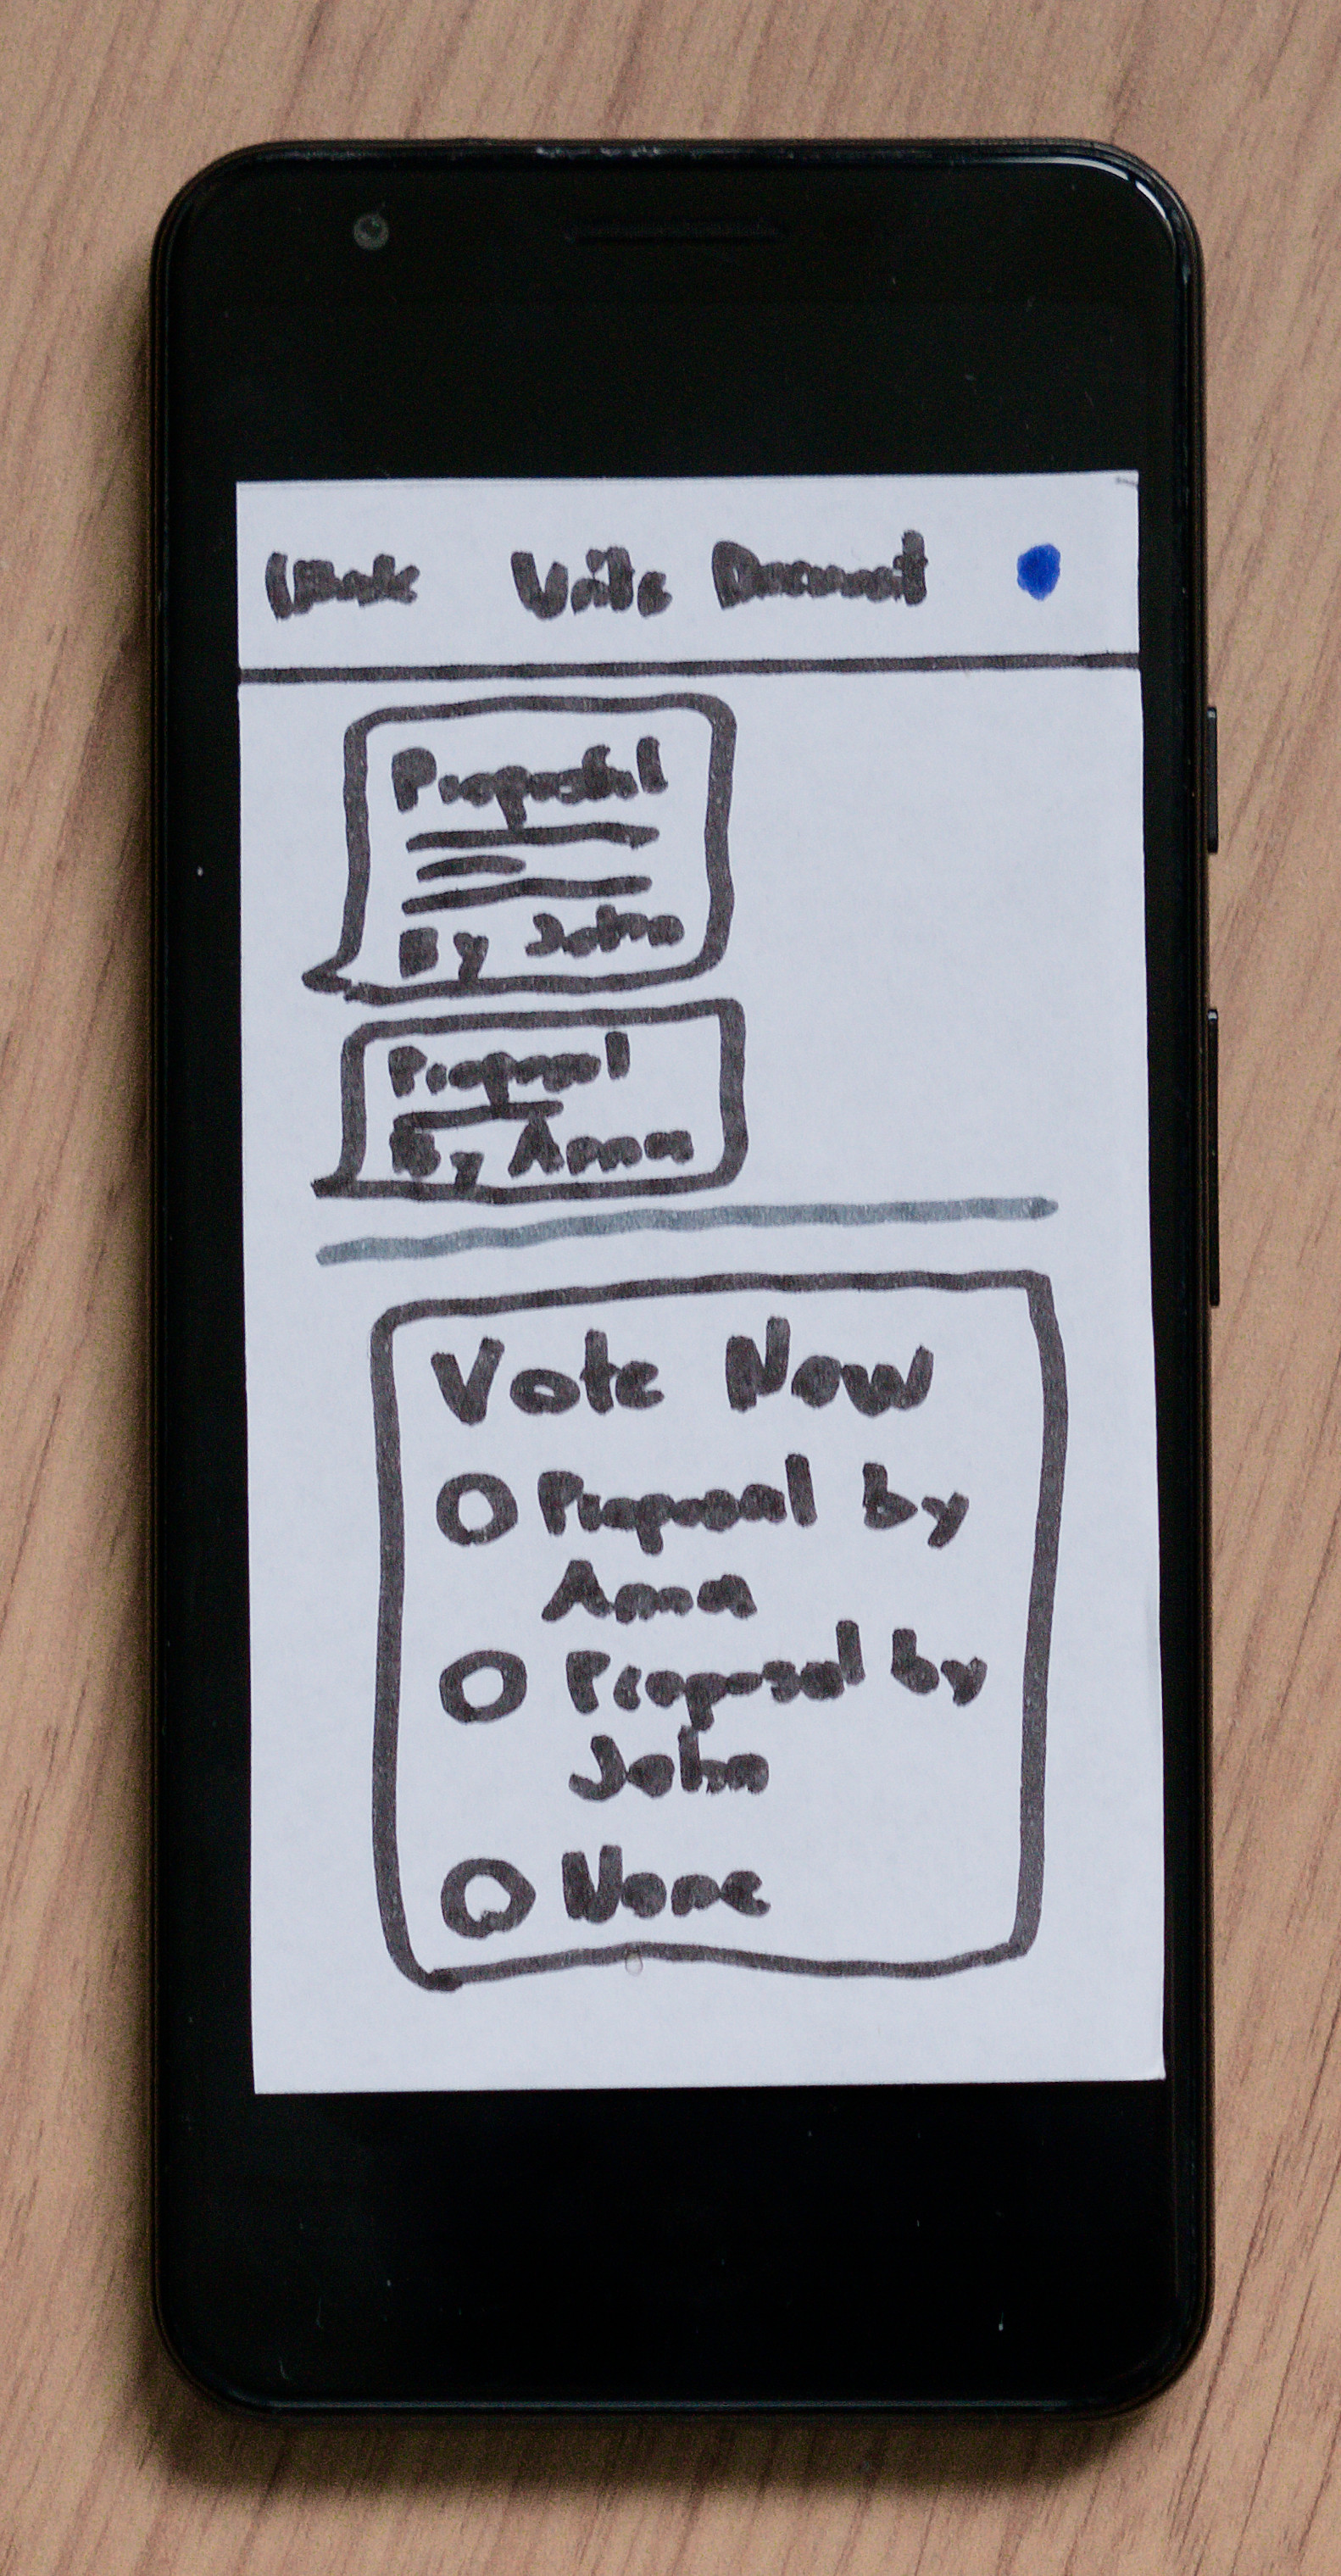 <Back Write Document
Proposal
By John
Proposal
By Anna
Vote Now
Proposal by
Anna
Proposal by
John
None